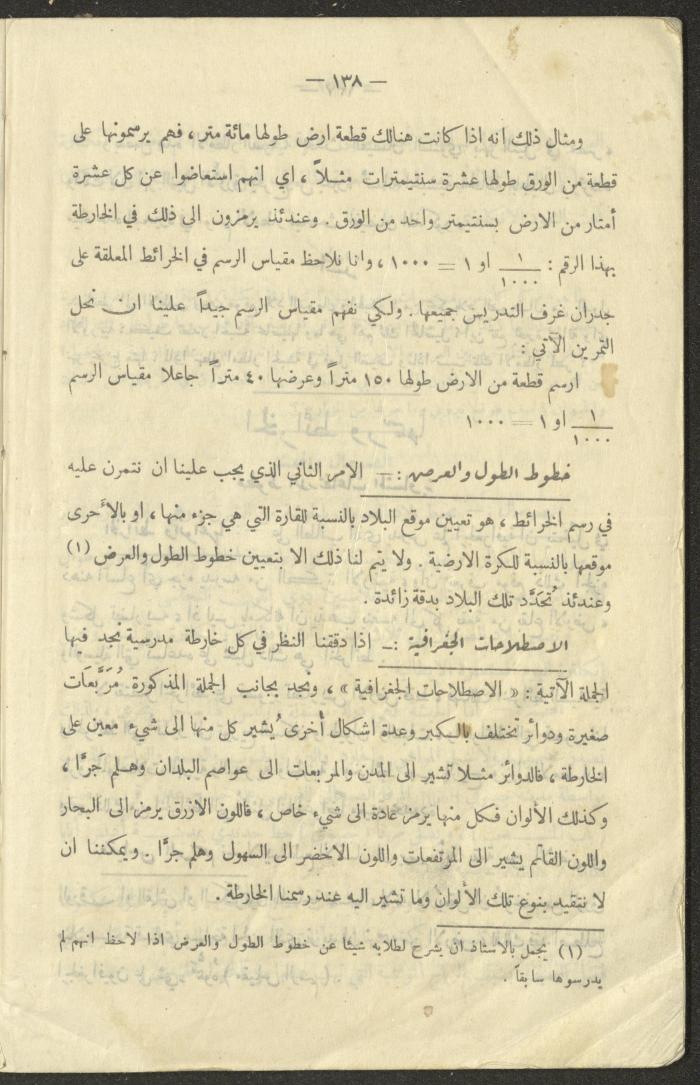 — ١٣٨ —
ومثال ذلك انه اذا كانت هنالك قطعة ارض طولها مائة متر ، فهم يرسمونها على
قطعة من الورق طولها عشرة سنتيمترات مثلاً ، اي انهم استعاضوا عن كل عشرة
أمتار من الارض بسنتيمتر واحد من الورق . وعندئذ يرمزون الى ذلك في الخارطة
بهذا الرقم : ١/١٠٠٠ او ١ = ١٠٠٠ ، وانا نلاحظ مقياس الرسم في الخرائط المعلقة على
جدران غرف التدريس جميعها . ولكي نفهم مقياس الرسم جيداً علينا ان نحل
التمرين الآتي :
ارسم قطعة من الارض طولها ١٥٠ متراً وعرضها ٤٠ متراً جاعلا مقياس الرسم
١/١٠٠٠ او ١ = ١٠٠٠
خطوط الطول والعرض : — الامر الثاني الذي يجب علينا ان نتمرن عليه
في رسم الخرائط ، هو تعيين موقع البلاد بالنسبة للقارة التي هي جزء منها ، او بالأحرى
موقعها بالنسبة للكرة الارضية . ولا يتم لنا ذلك الا بتعيين خطوط الطول والعرض (١)
وعندئذ تُحَدَّد تلك البلاد بدقة زائدة .
الاصطلاحات الجغرافية :— اذا دققنا النظر في كل خارطة مدرسية نجد فيها
الجملة الآتية : « الاصطلاحات الجغرافية » ، ونجد بجانب الجملة المذكورة مُرَبَّعَات
صغيرة ودوائر تختلف بالكبر وعدة اشكال أخرى يُشير كل منها الى شيء معين على
الخارطة ، فالدوائر مثلا تشير الى المدن والمربعات الى عواصم البلدان وهلم جَرًّا ،
وكذلك الألوان فكل منها يرمز عادة الى شيء خاص ، فاللون الازرق يرمز الى البحار
واللون القاتم يشير الى المرتفعات واللون الاخضر الى السهول وهلم جرًّا . ويمكننا ان
لا نتقيد بنوع تلك الألوان وما تشير اليه عند رسمنا الخارطة .
(١) يجمل بالاستاذ ان يشرح لطلابه شيئا عن خطوط الطول والعرض اذا لاحظ انهم لم
يدرسوها سابقاً .